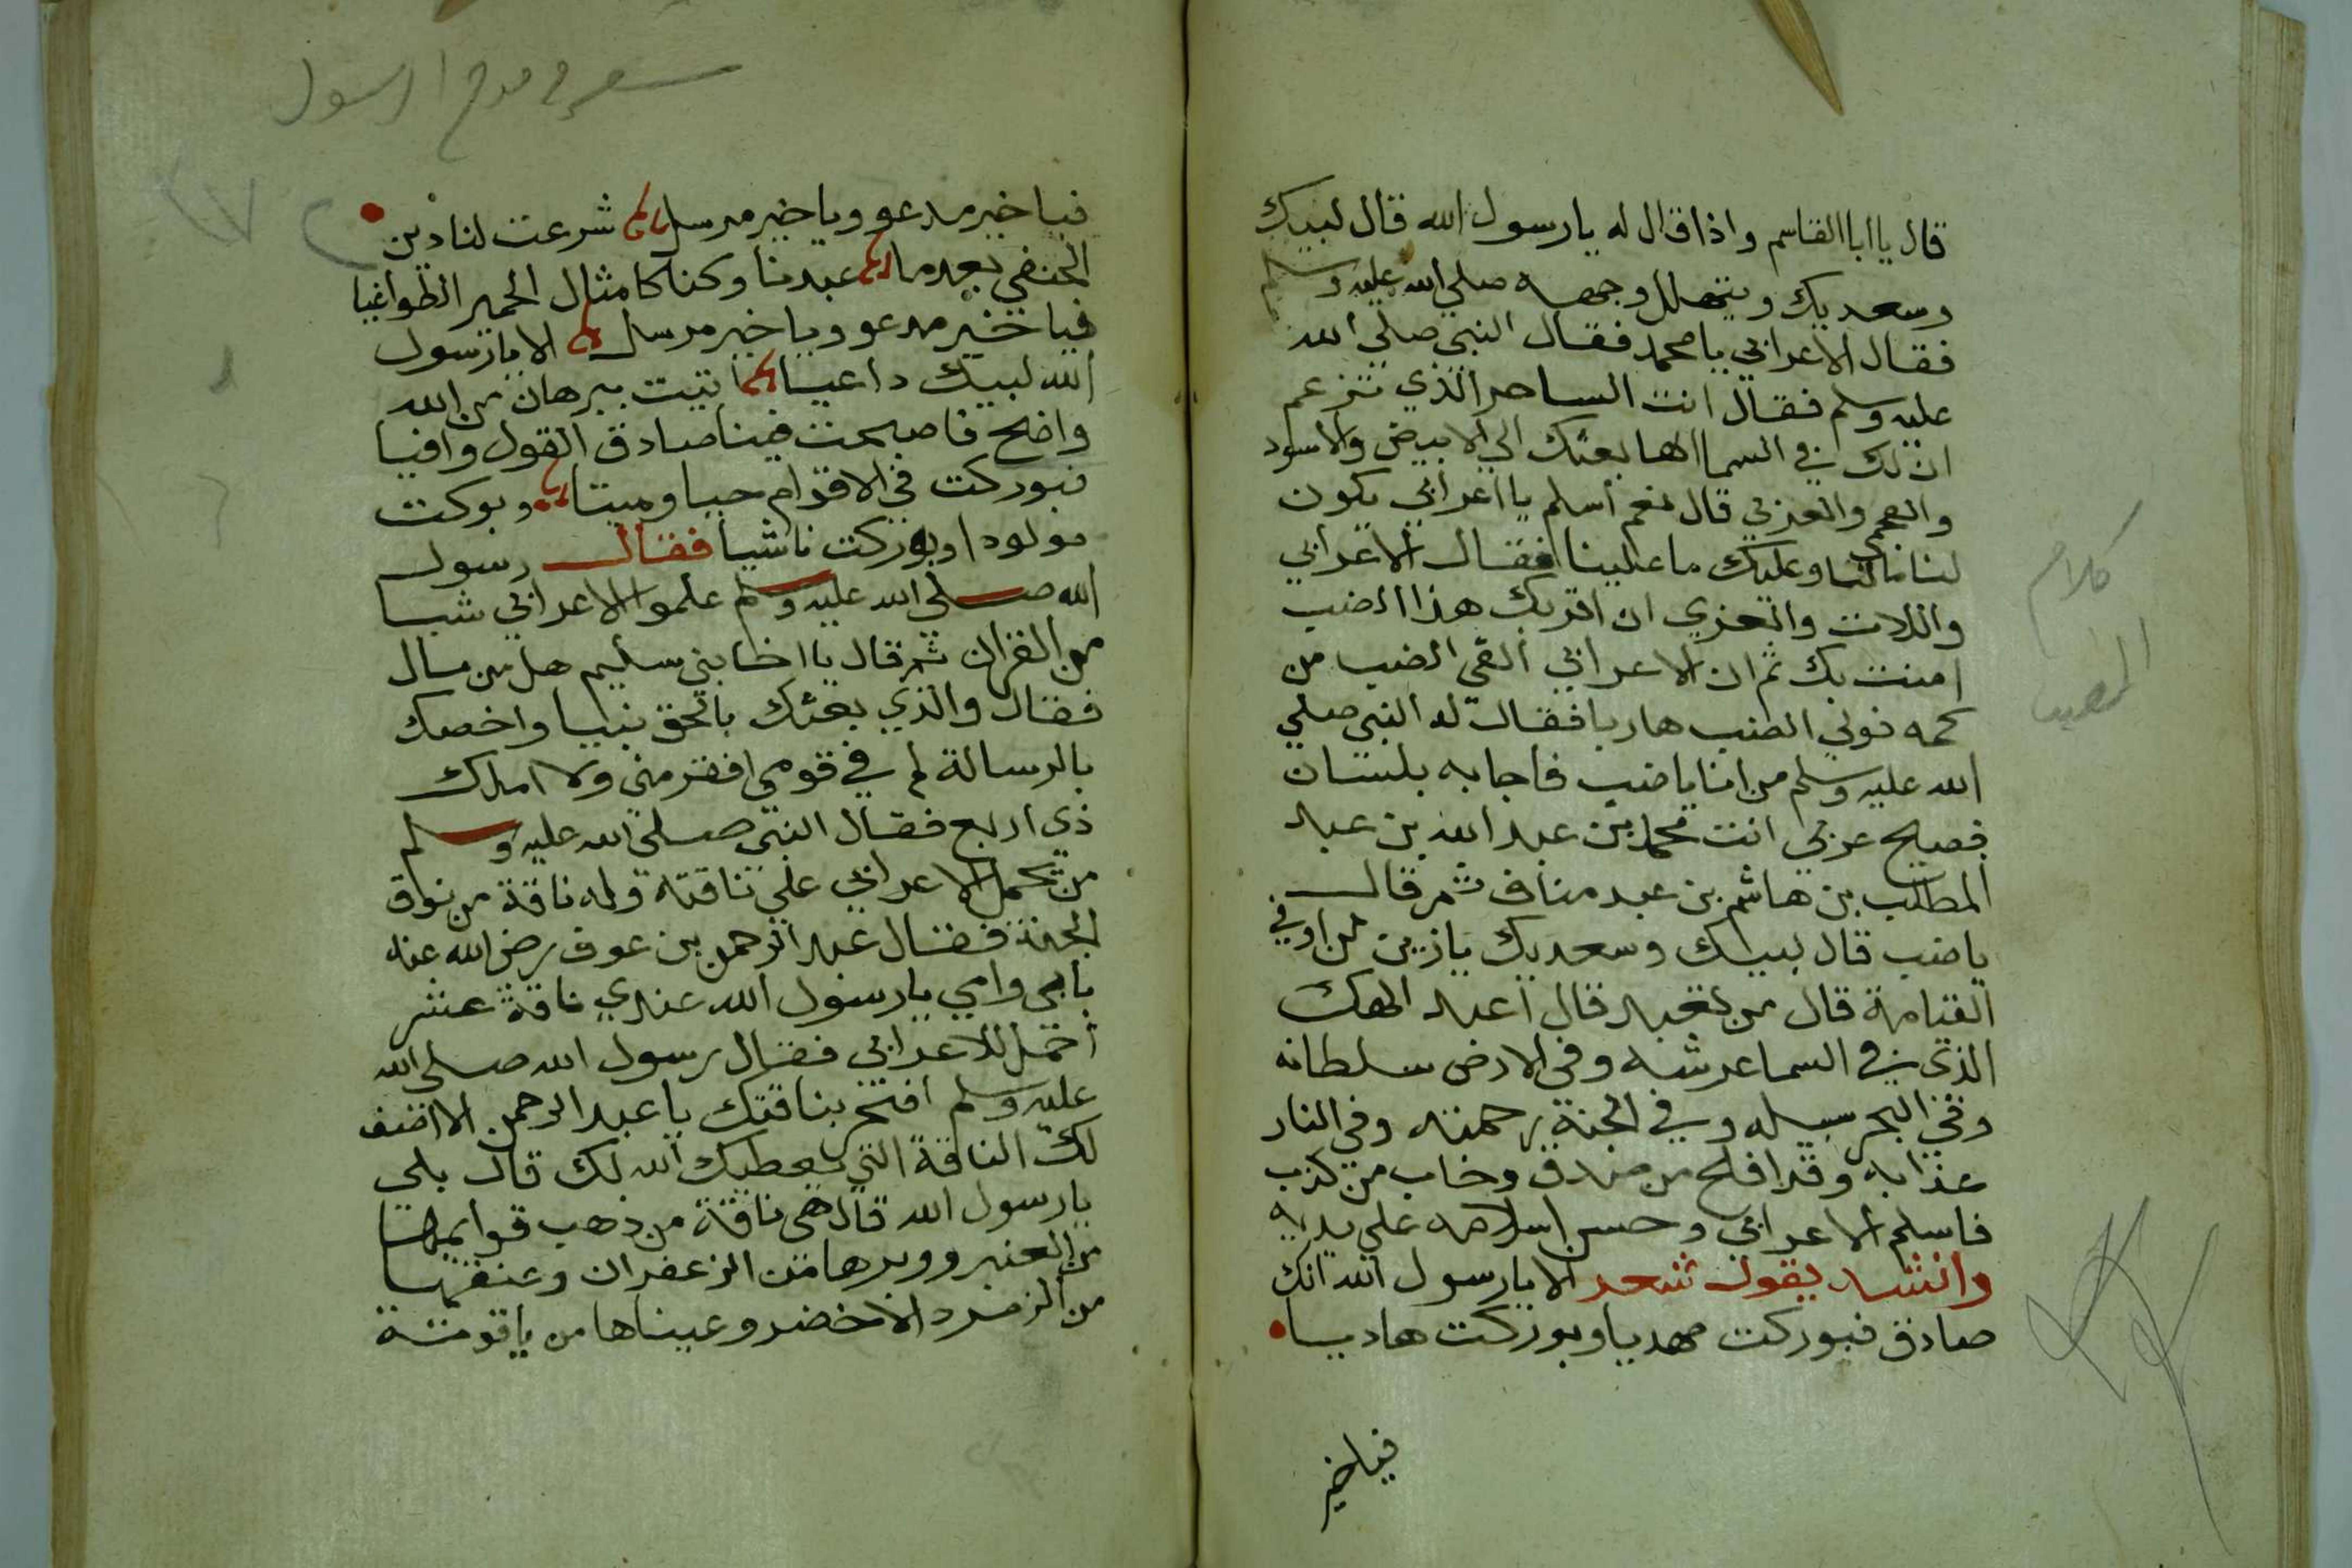 قال يا ابا القاسم واذا قال له يا رسول الله قال لبيك
وسعديك ويتهلل وجهه صلى الله عليه وسلم
فقال الاعرابي يا محمد فقال النبي صلى الله
عليه وسلم فقال انت الساحر الذي تزعم
ان لك في السما الها بعثك الي الابيض والاسود
والعجمي والعربي قال نعم اسلم يا اعرابي يكون
لنا مالنا وعليك ما علينا فقال الاعرابي
واللات والعزي ان اقربك هذا الضب
امنت بك ثم ان الاعرابي القي الضب من
كمه فولي الضب هاربا فقال له النبي صلي
الله عليه وسلم من انا يا ضب فاجابه بلسان
فصيح عربي انت محمد بن عبد الله بن عبد
المطلب بن هاشم بن عبد مناف ثم قال
يا ضب قال لبيك وسعديك يا زين من اوفي
القيامة قال من تعبد قال اعبد الهك
الذي في السما عرشه وفي الارض سلطانه
وفي البحر سبيله وفي الجنة رحمته وفي النار
عذابه وقد افلح من صدق وخاب من كذب
فاسلم الاعرابي وحسن اسلامه علي يديه
وانشد يقول شعر الا يا رسول الله انك
صادق فبوركت مهديا وبوركت هاديا
فيا خير
كلام
الضب
شعر في مدح الرسول
٢٧
فيا خير مدعو ويا خير مرسل شرعت لنا دين
الحنفي بعد ما عبدنا وكنا كامثال الحمير الطواغيا
فيا خير مدعو ويا خير مرسل الا يا رسول
الله لبيك داعيا اتيت ببرهان من الله
واضح فاصبحت فينا صادق القول وافيا
فبوركت في الاقوام حيا وميتا وبوكت
مولودا وبوركت ناشيا فقال رسول
الله صلي الله عليه وسلم علموا الاعرابي شيا
من القران ثم قال يا اخا بني سليم هل من مال
فقال والذي بعثك بالحق نبيا واخصك
بالرسالة لم في قومي افقر مني ولا املك
ذي اربع فقال النبي صلى الله عليه وسلم
من يحمل الاعرابي علي ناقته وله ناقة من نوق
الجنة فقال عبد الرحمن بن عوف رضي الله عنه
بابي وامي يا رسول الله عندي ناقة عشر
احمل للاعرابي فقال رسول الله صلى الله
عليه وسلم افتخر بناقتك يا عبد الرحمن الا اصف
لك الناقة التي يعطيك الله لك قال بلي
يا رسول الله قال هي ناقة من ذهب قوايمها
من العنبر ووبرها من الزعفران وعنقها
من الزمرد الاخضر وعيناها من ياقوتة